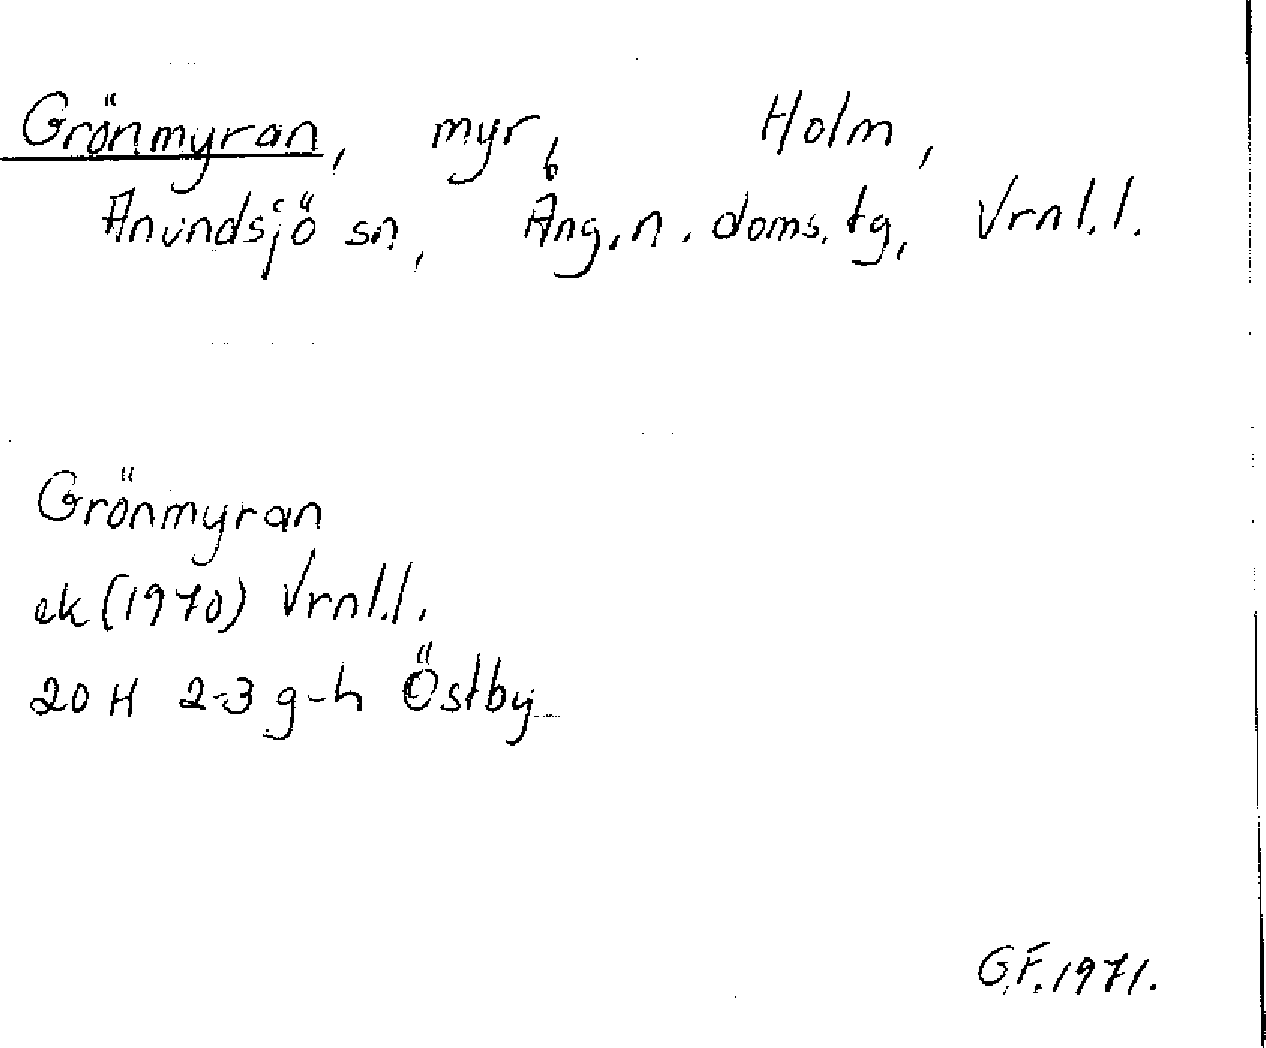 Grönmyran, myr, Holm,
Anundsjö sn, Ång.n. doms. tg, Vrnl.l.
Grönmyran
ek (1970) Vrnl.l.
20 H 2-3 g-h Östby
G.F. 1971.